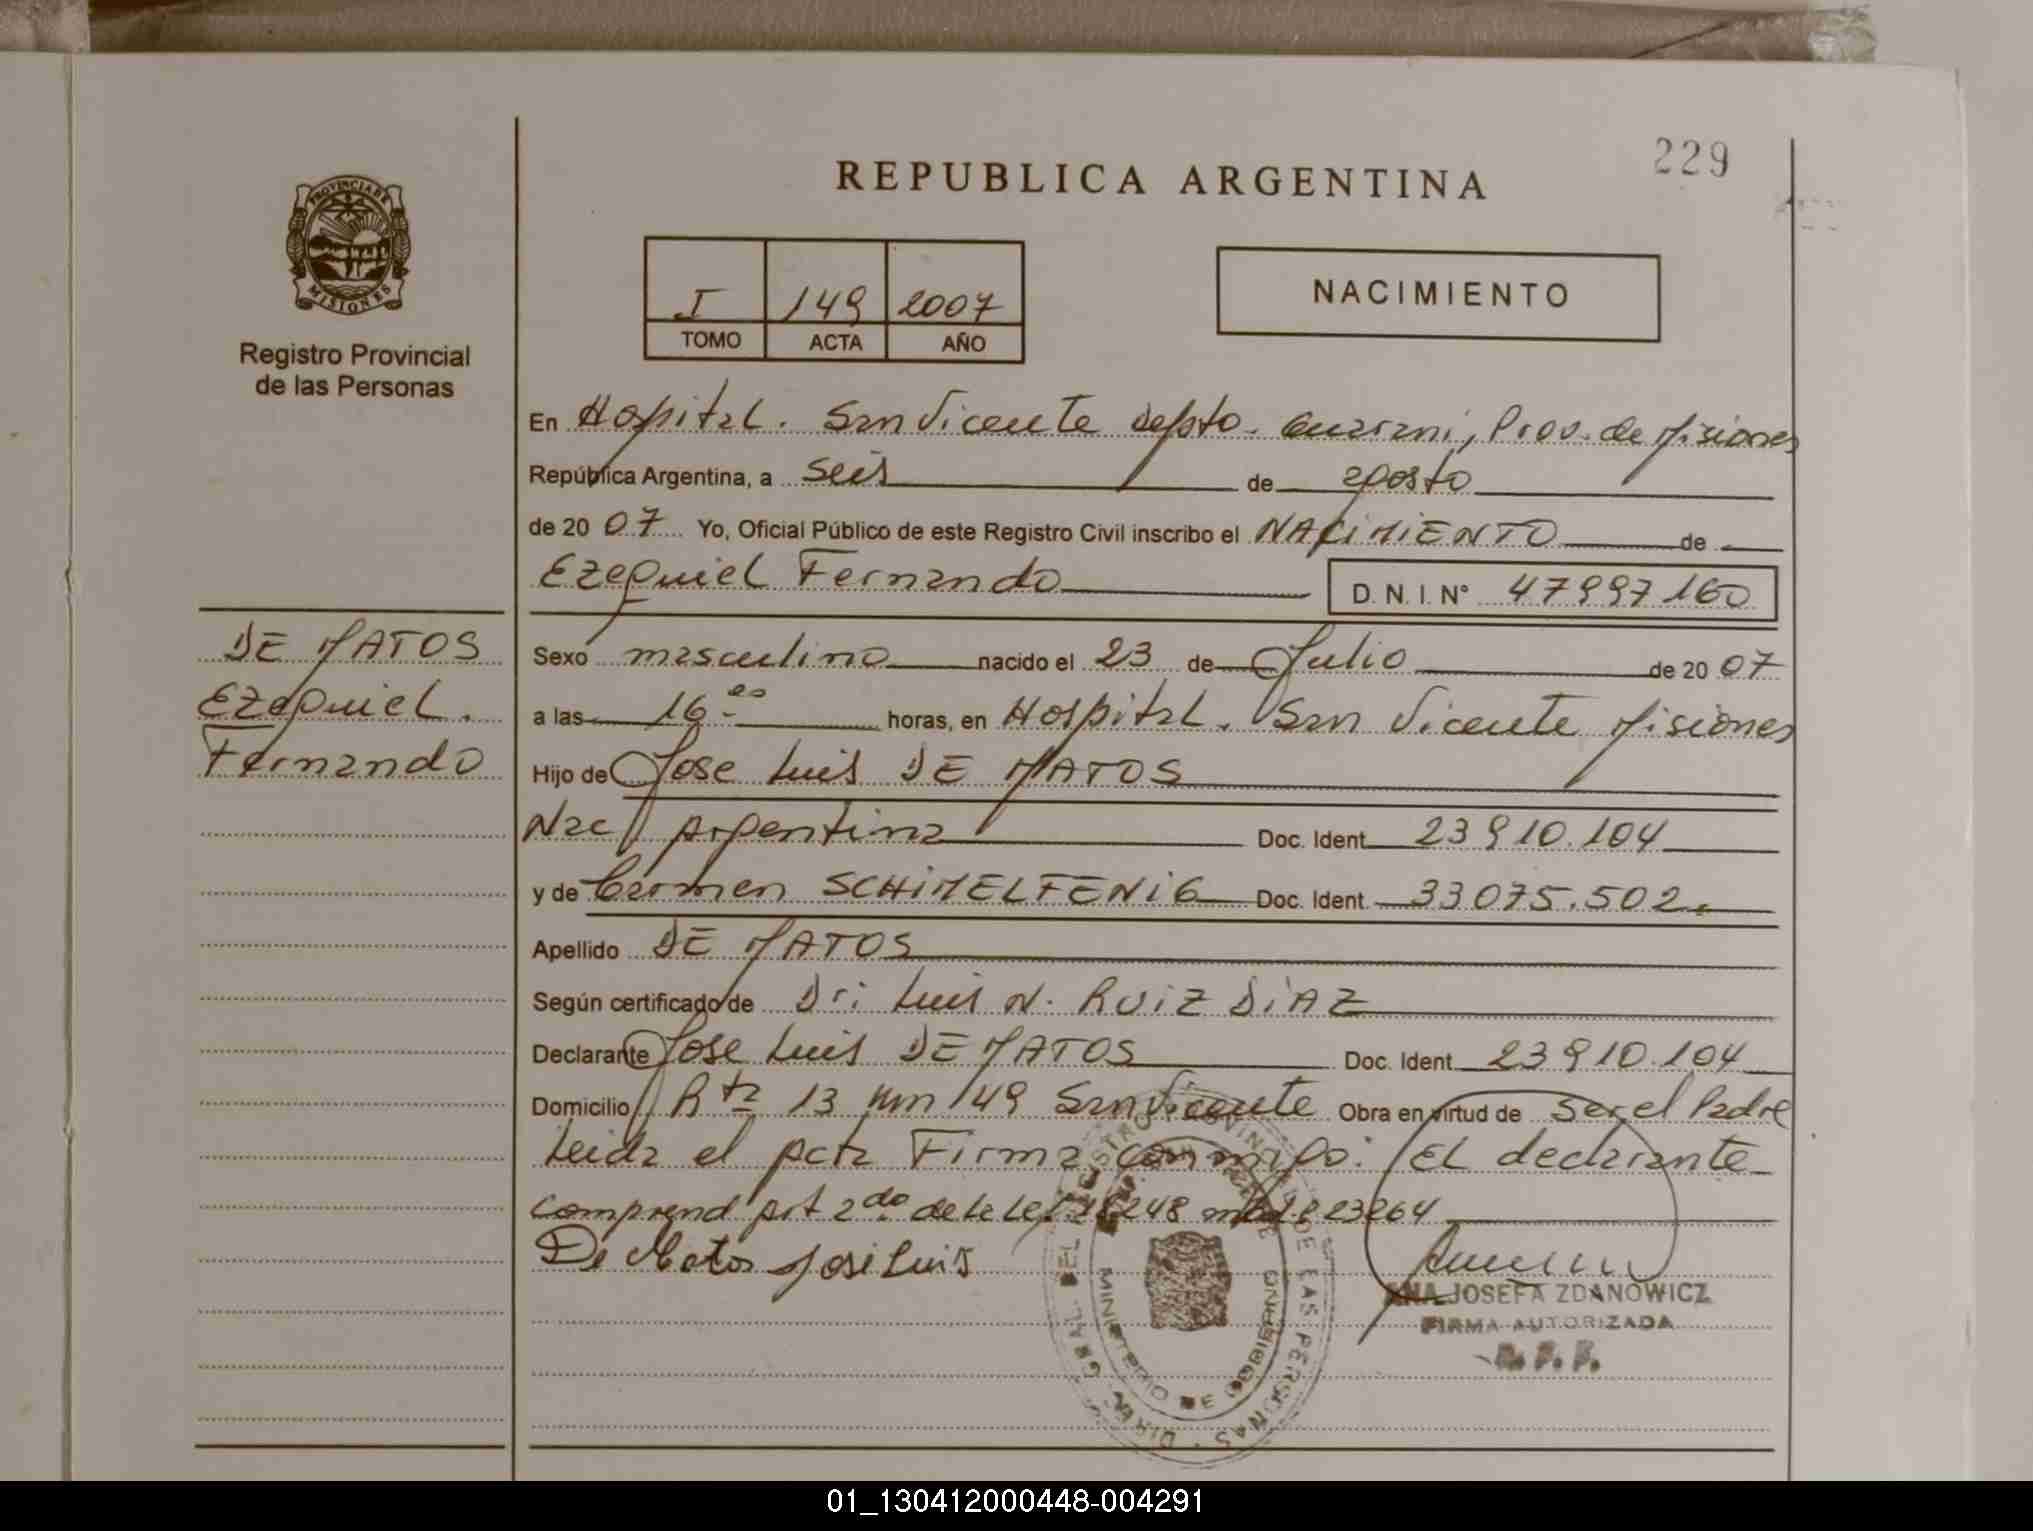 229
REPUBLICA ARGENTINA
PROVINCIA DE
MISIONES
Registro Provincial
de las Personas
I 149 2007
TOMO ACTA AÑO
NACIMIENTO
En Hospital. San Vicente Depto. Guarani, Prov. de Misiones
República Argentina, a Seis de agosto
de 20 07 Yo, Oficial Público de este Registro Civil inscribo el NACIMIENTO de
Ezequiel Fernando D. N. I. N° 47997160
DE MATOS
Ezequiel.
Fernando
Sexo masculino nacido el 23 de Julio de 20 07
a las 16 es horas, en Hospital. San Vicente Misiones
Hijo de Jose Luis DE MATOS
Nac Argentina Doc. Ident 23910.104
y de Carmen SCHIMELFENIG Doc. Ident. 33075.502.
Apellido DE MATOS
Según certificado de Dr: Luis N. RUIZ DIAZ
Declarante Jose Luis DE MATOS Doc. Ident 23910.104
Domicilio Rta 13 Km 149 San Vicente Obra en virtud de Ser el Padre
Leida el acta Firma conmigo: EL declarante
Comprend art 2do. de la Ley 18248 23264
De Matos José Luis
ANA JOSEFA ZDANOWICZ
FIRMA AUTORIZADA
R. P. P.
DIR. GRAL. DEL REGISTRO PROVINCIAL DE LAS PERSONAS
MINISTERIO DE GOBIERNO
01_130412000448-004291